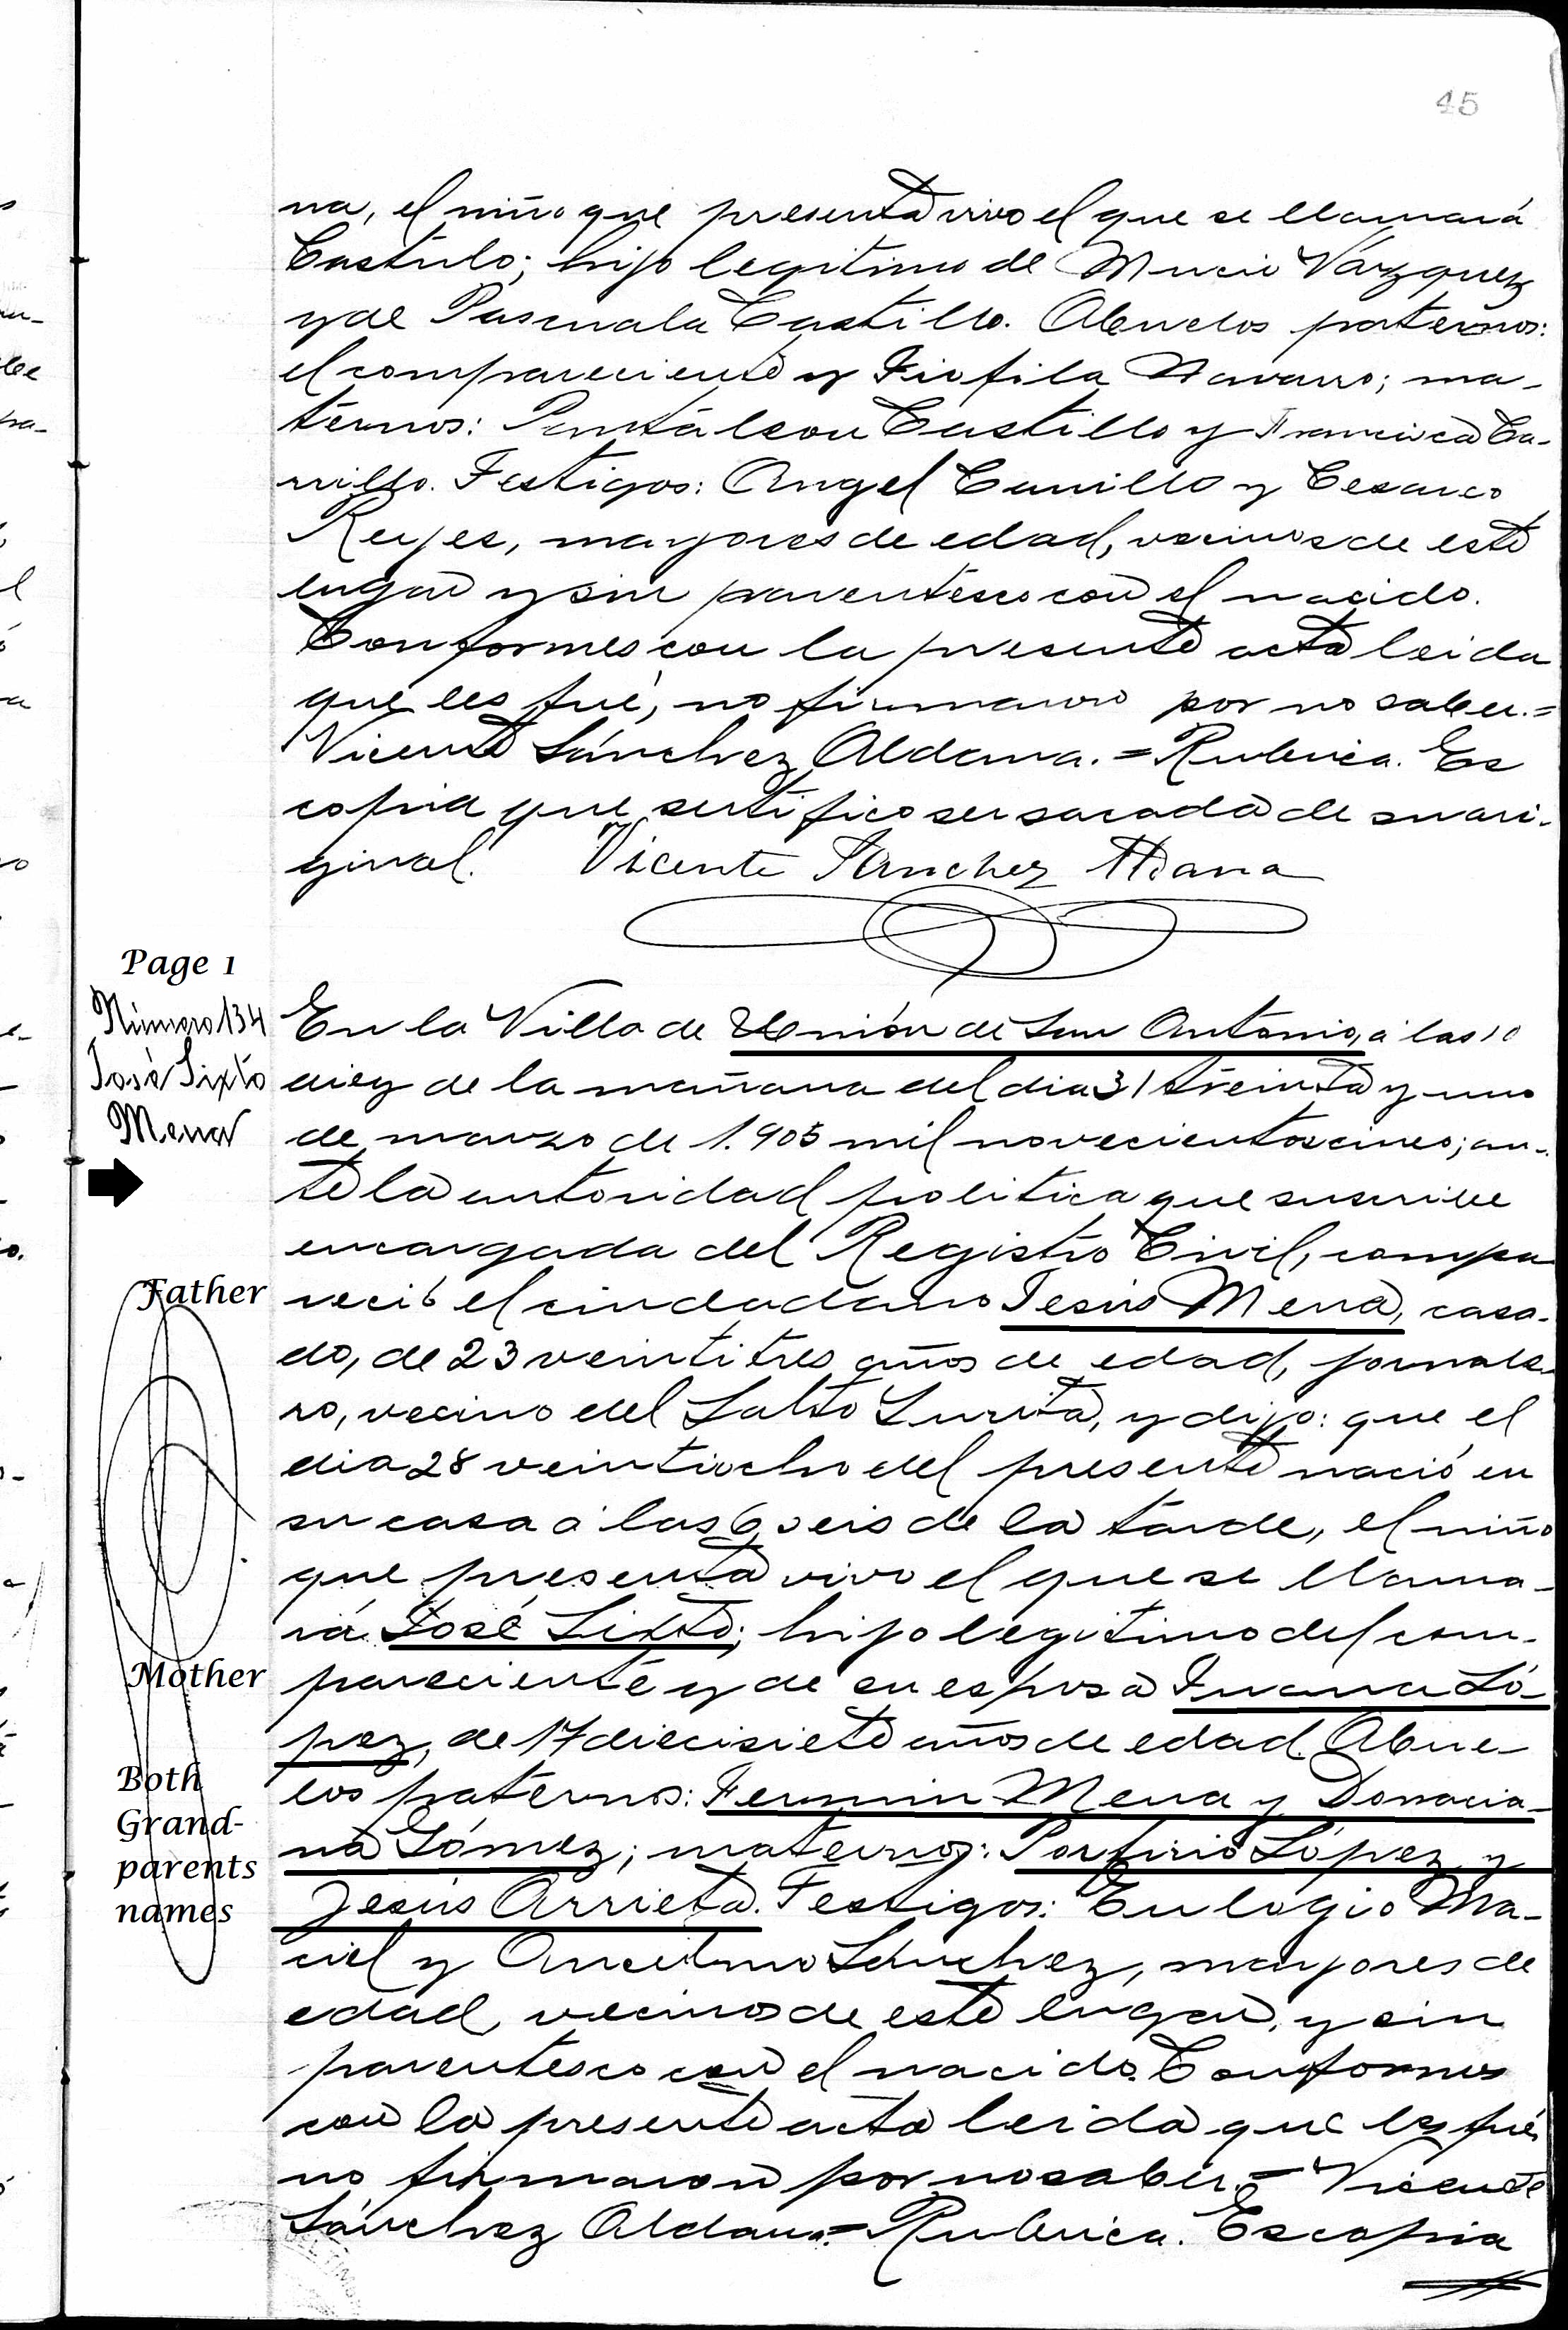 45
na, el niño que presenta vivo el que se llamará
Castulo; hijo legitimo de Mucio Vázquez
y de Pascuala Castillo. Abuelos paternos:
el compareciente y Tiofila Navarro; ma-
ternos: Pantáleon Castillo y Francisca Ca-
rrillo. Testigos: Angel Carrillo y Cesareo
Reyes, mayores de edad, vecinos de este
lugar y sin parentesco con el nacido.
Conformes con la presente acta leida
que les fué, no firmaron por no saber.=
Vicente Sánchez Aldana.=Rubrica. Es
copia que sertifico ser sacada de su ori-
ginal. Vicente Sánchez Aldana
Page 1
Número 134
José Sixto
Mena
En la Villa de Unión de San Antonio, á las 10
diez de la mañana del dia 31 treinta y uno
de marzo de 1.905 mil novecientos cinco; an-
te la autoridad politica que suscribe
encargada del Registro Civil, compa
reció el ciudadano Jesús Mena, casa-
do, de 23 veintitres años de edad, jornale
ro, vecino del Salto Zurita, y dijo: que el
dia 28 veintiocho del presente nació en
su casa á las 6 seis de la tarde, el niño
que presenta vivo el que se llama-
rá José Sixto; hijo legitimo del com-
pareciente y de su esposa Juana Ló-
pez, de 17 diecisiete años de edad. Abue-
los paternos: Fermin Mena y Donacia-
na Gómez; maternos: Porfirio López y
Jesús Arrieta. Testigos: Eulogio Ma-
ciel y Anselmo Sánchez, mayores de
edad, vecinos de este lugar, y sin
parentesco con el nacido. Conformes
con la presente acta leida que les fué,
no firmaron por no saber.= Vicente
Sánchez Aldana.=Rubrica. Es copia
Father
Mother
Both
Grand-
parents
names